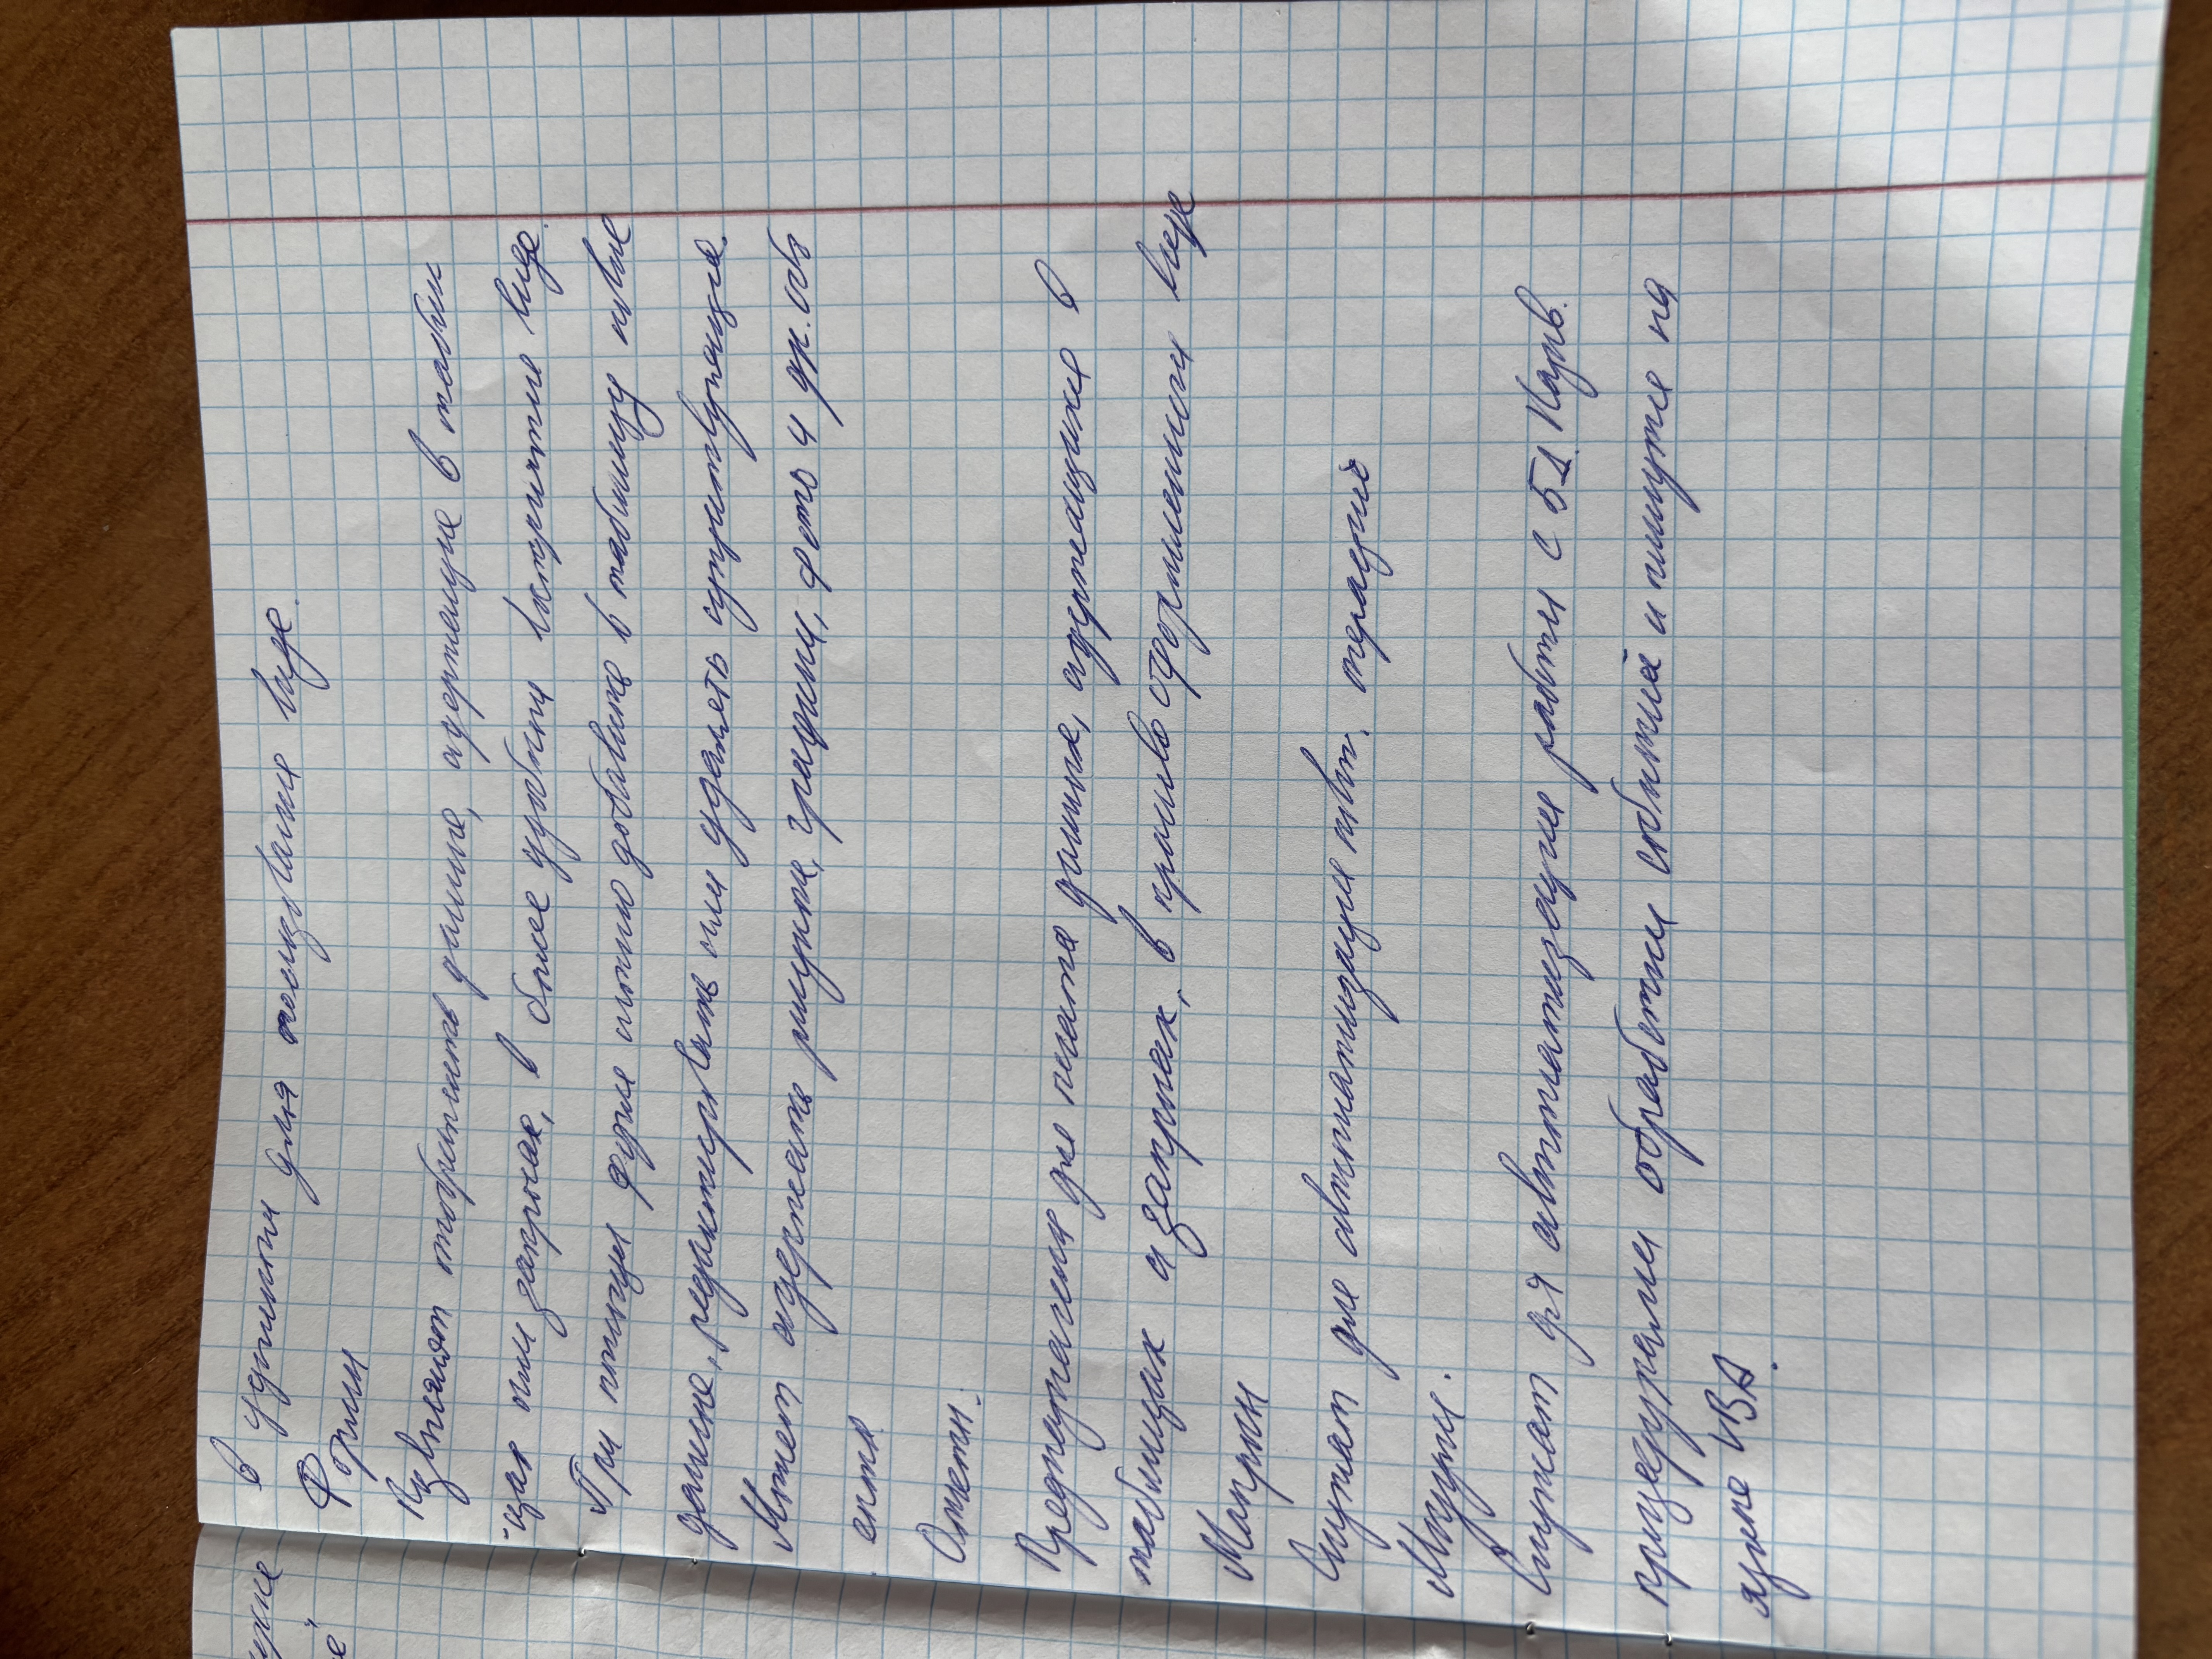 в удобном для пользования виде.
Формы
Позволяют отображать данные, содержащиеся в табли
цах или запросах, в более удобном для восприятия виде.
При помощи форм можно добавить в таблицу новые
данные, редактировать или удалять существующие.
Может содержать рисунки, графики, фото и др. объ
екты
Отчеты.
Предназначены для печати данных, содержащихся в
таблицах и запросах, в красиво оформленном виде
Макросы
Служат для автоматизации повт. операций
Модули.
Служат для автоматизации работы с БД. Назв.
процедурами обработки событий и пишутся на
языке VBA.